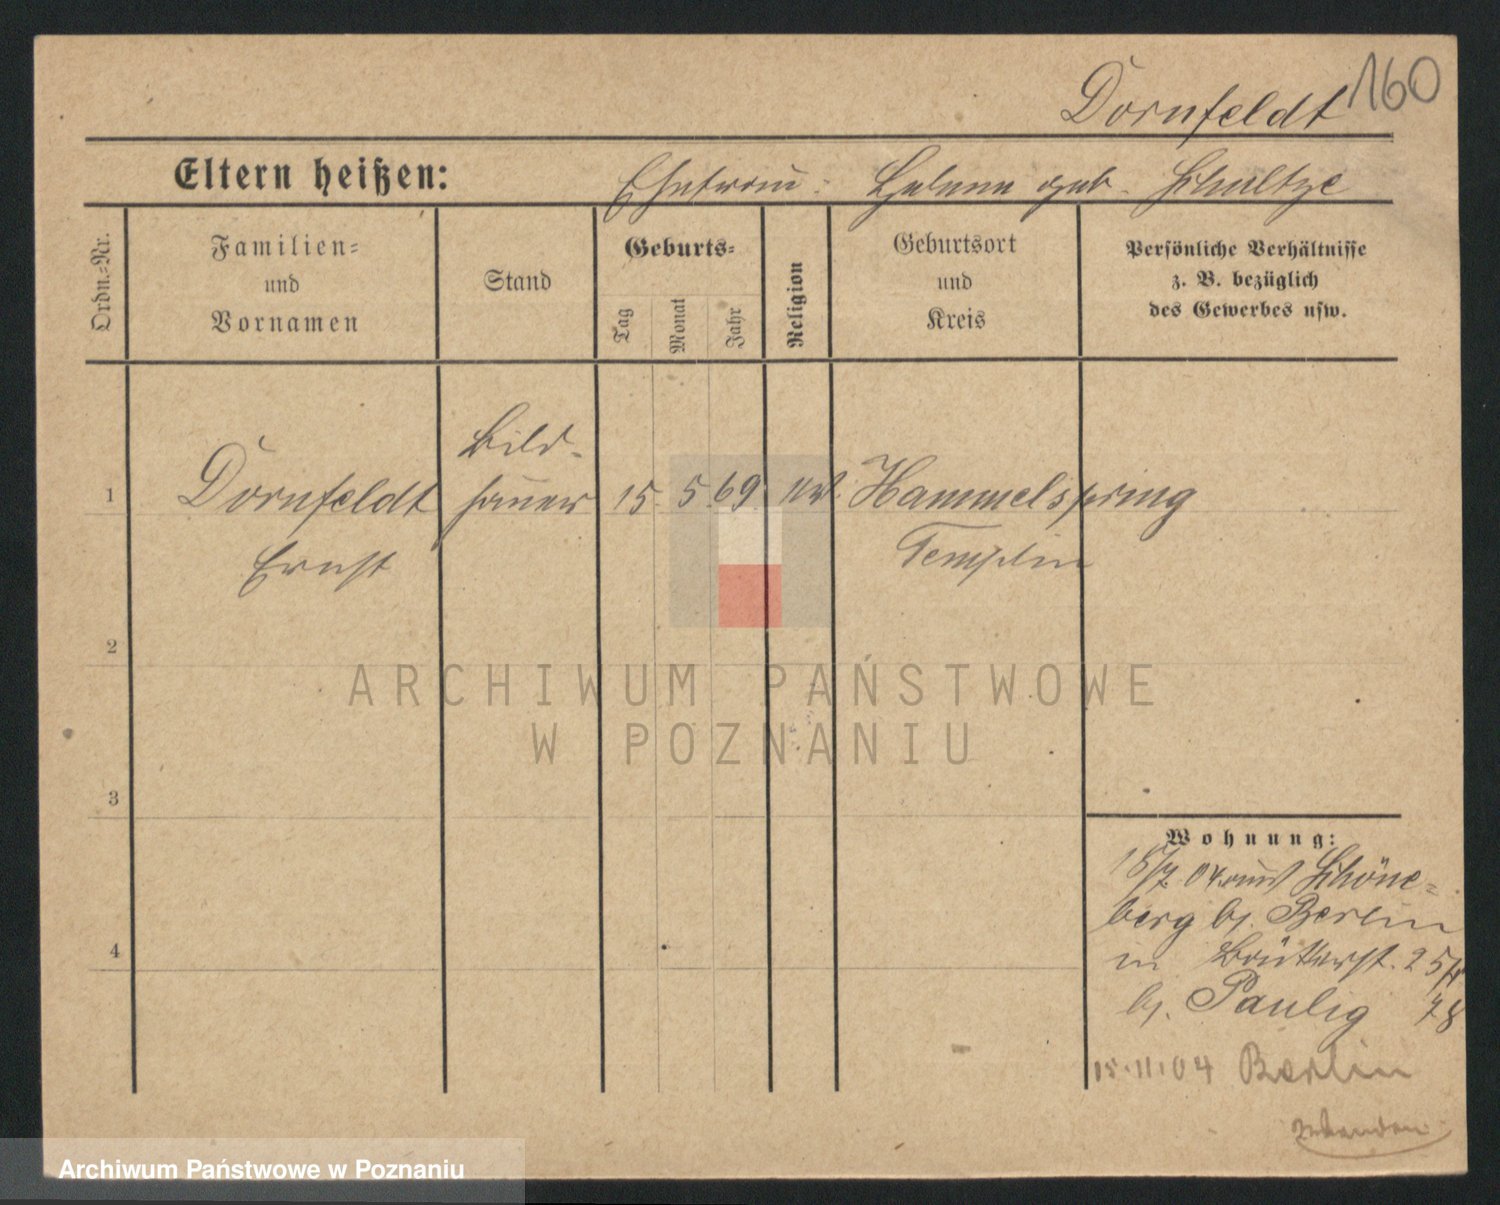 Dornfeldt 160
Eltern heißen: Ehefrau: Helene geb. Schultze
Ordn.=Nr.
Familien=
und
Vornamen
Stand
Geburts=
Tag
Monat
Jahr
Religion
Geburtsort
und
Kreis
Persönliche Verhältnisse
z. B. bezüglich
des Gewerbes usw.
Bild-
1 Dornfeldt hauer 15. 5. 69. Hammelspring
Ernst Templin
2
ARCHIWUM PAŃSTWOWE
W POZNANIU
3
Wohnung:
18/7. 04 aus Schöne=
berg b. Berlin
in 25
b. Paulig 78
4
15.11.04 Berlin
Archiwum Państwowe w Poznaniu